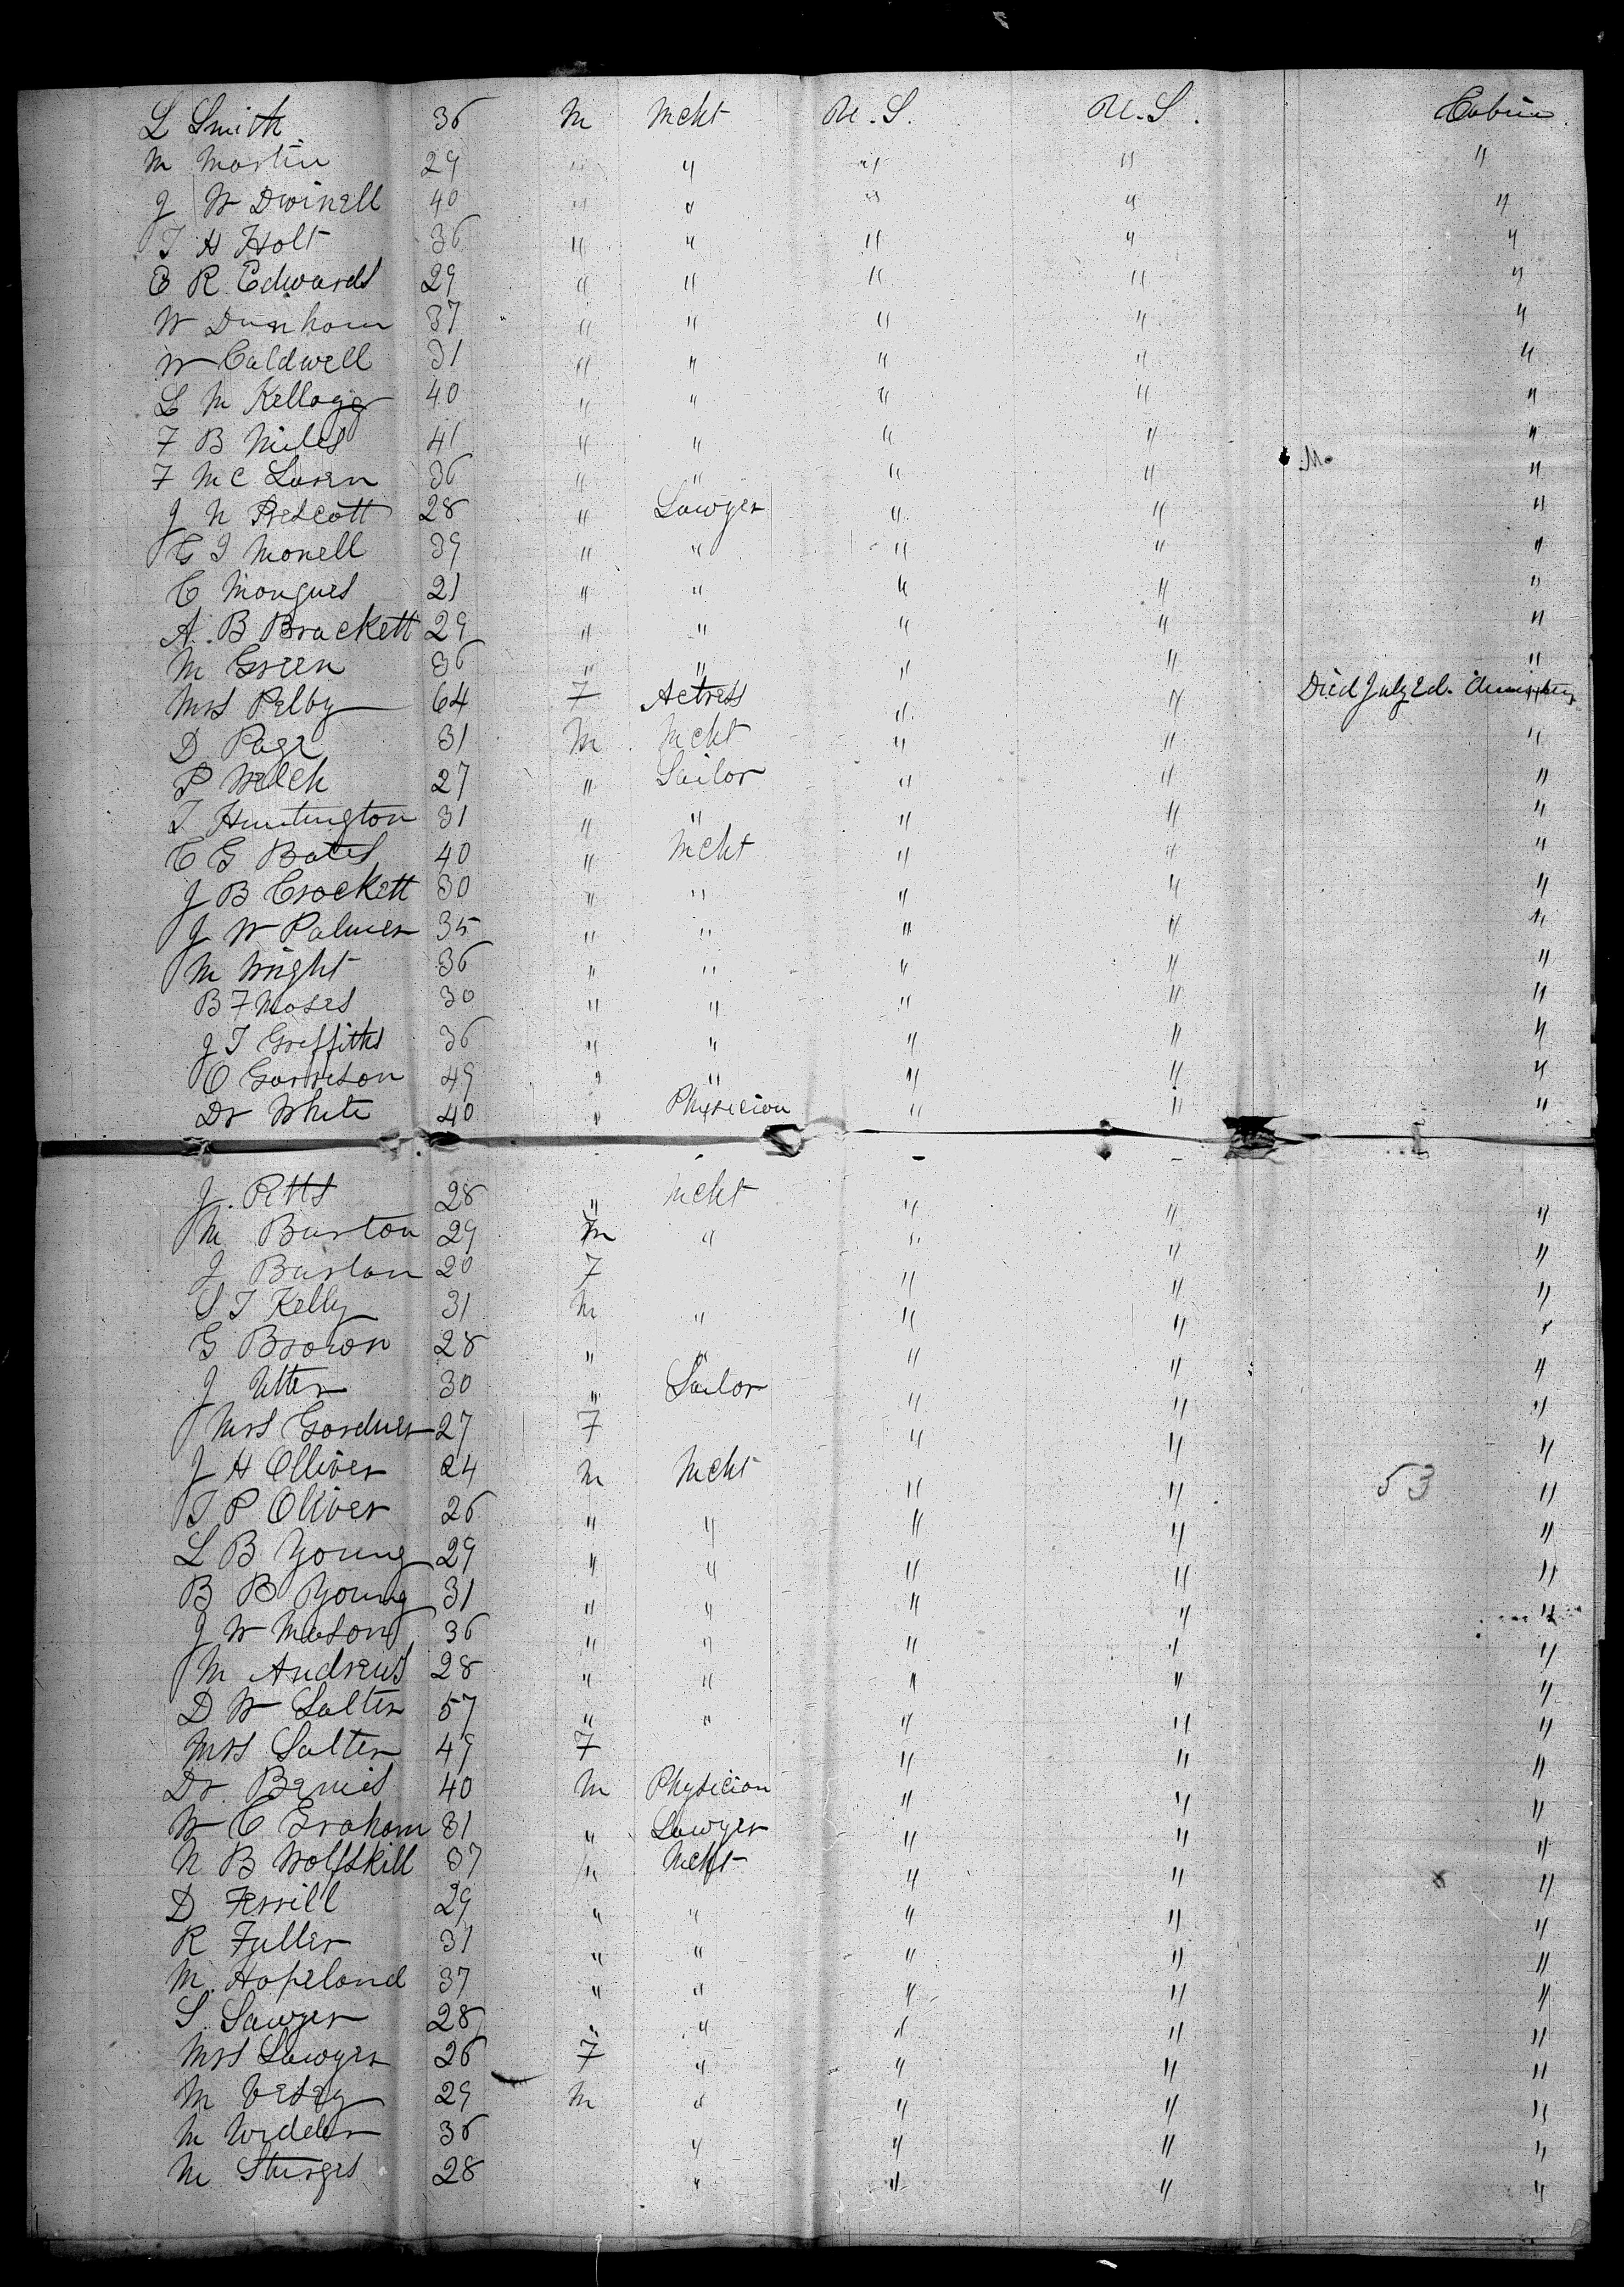 L Smith 36 M Mcht U.S. U.S. Cabin
M Martin 29 " " " " "
J W Dwinell 40 " " " " "
T H Holt 36 " " " " "
E R Edwards 29 " " " " "
W Dunham 37 " " " " "
W Caldwell 31 " " " " "
L M Kellogg 40 " " " " "
F B Miles 41 " " " " "
F Mc Laren 36 " " " " "
J N Prescott 28 " Lawyer " " "
G I Monell 39 " " " " "
C Mongues 21 " " " " "
A. B Brackett 29 " " " " "
M Green 36 " " " " "
Mrs Pelby 64 F Actress " " Died July 2d. "
D Page 31 M Mcht " " "
P Welch 27 " Sailor " " "
T Huntington 31 " " " " "
C G Bates 40 " Mcht " " "
J B Crockett 30 " " " " "
J W Palmer 35 " " " " "
M Wright 36 " " " " "
B F Moses 30 " " " " "
J T Greffiths 36 " " " " "
C Garrison 49 " " " " "
Dr White 40 " Physician " " "
J. Pitts 28 " Mcht " " "
M Burton 29 M " " " "
J Burton 20 F " " "
S T Kelly 31 M " " " "
G Brown 28 " " " " "
J Utter 30 " Sailor " " "
Mrs Gardner 27 F " " "
J H Olliver 24 M Mcht " " 53 "
T P Oliver 26 " " " " "
L B Young 29 " " " " "
B B Young 31 " " " " "
J W Mason 36 " " " " "
M Andrews 28 " " " " "
D W Salter 57 " " " " "
Mrs Salter 49 F " " "
Dr. Bemis 40 M Physician " " "
W C Graham 31 " Lawyer " " "
N B Wolfskill 37 " Mcht " " x "
D Ferrill 29 " " " " "
R Fuller 31 " " " " "
M. Hopeland 37 " " " " "
S. Sawyer 28 " " " " "
Mrs Sawyer 26 F " " " "
M Vesey 29 M " " " "
M Widder 36 " " " "
M Sturges 28 " " " "